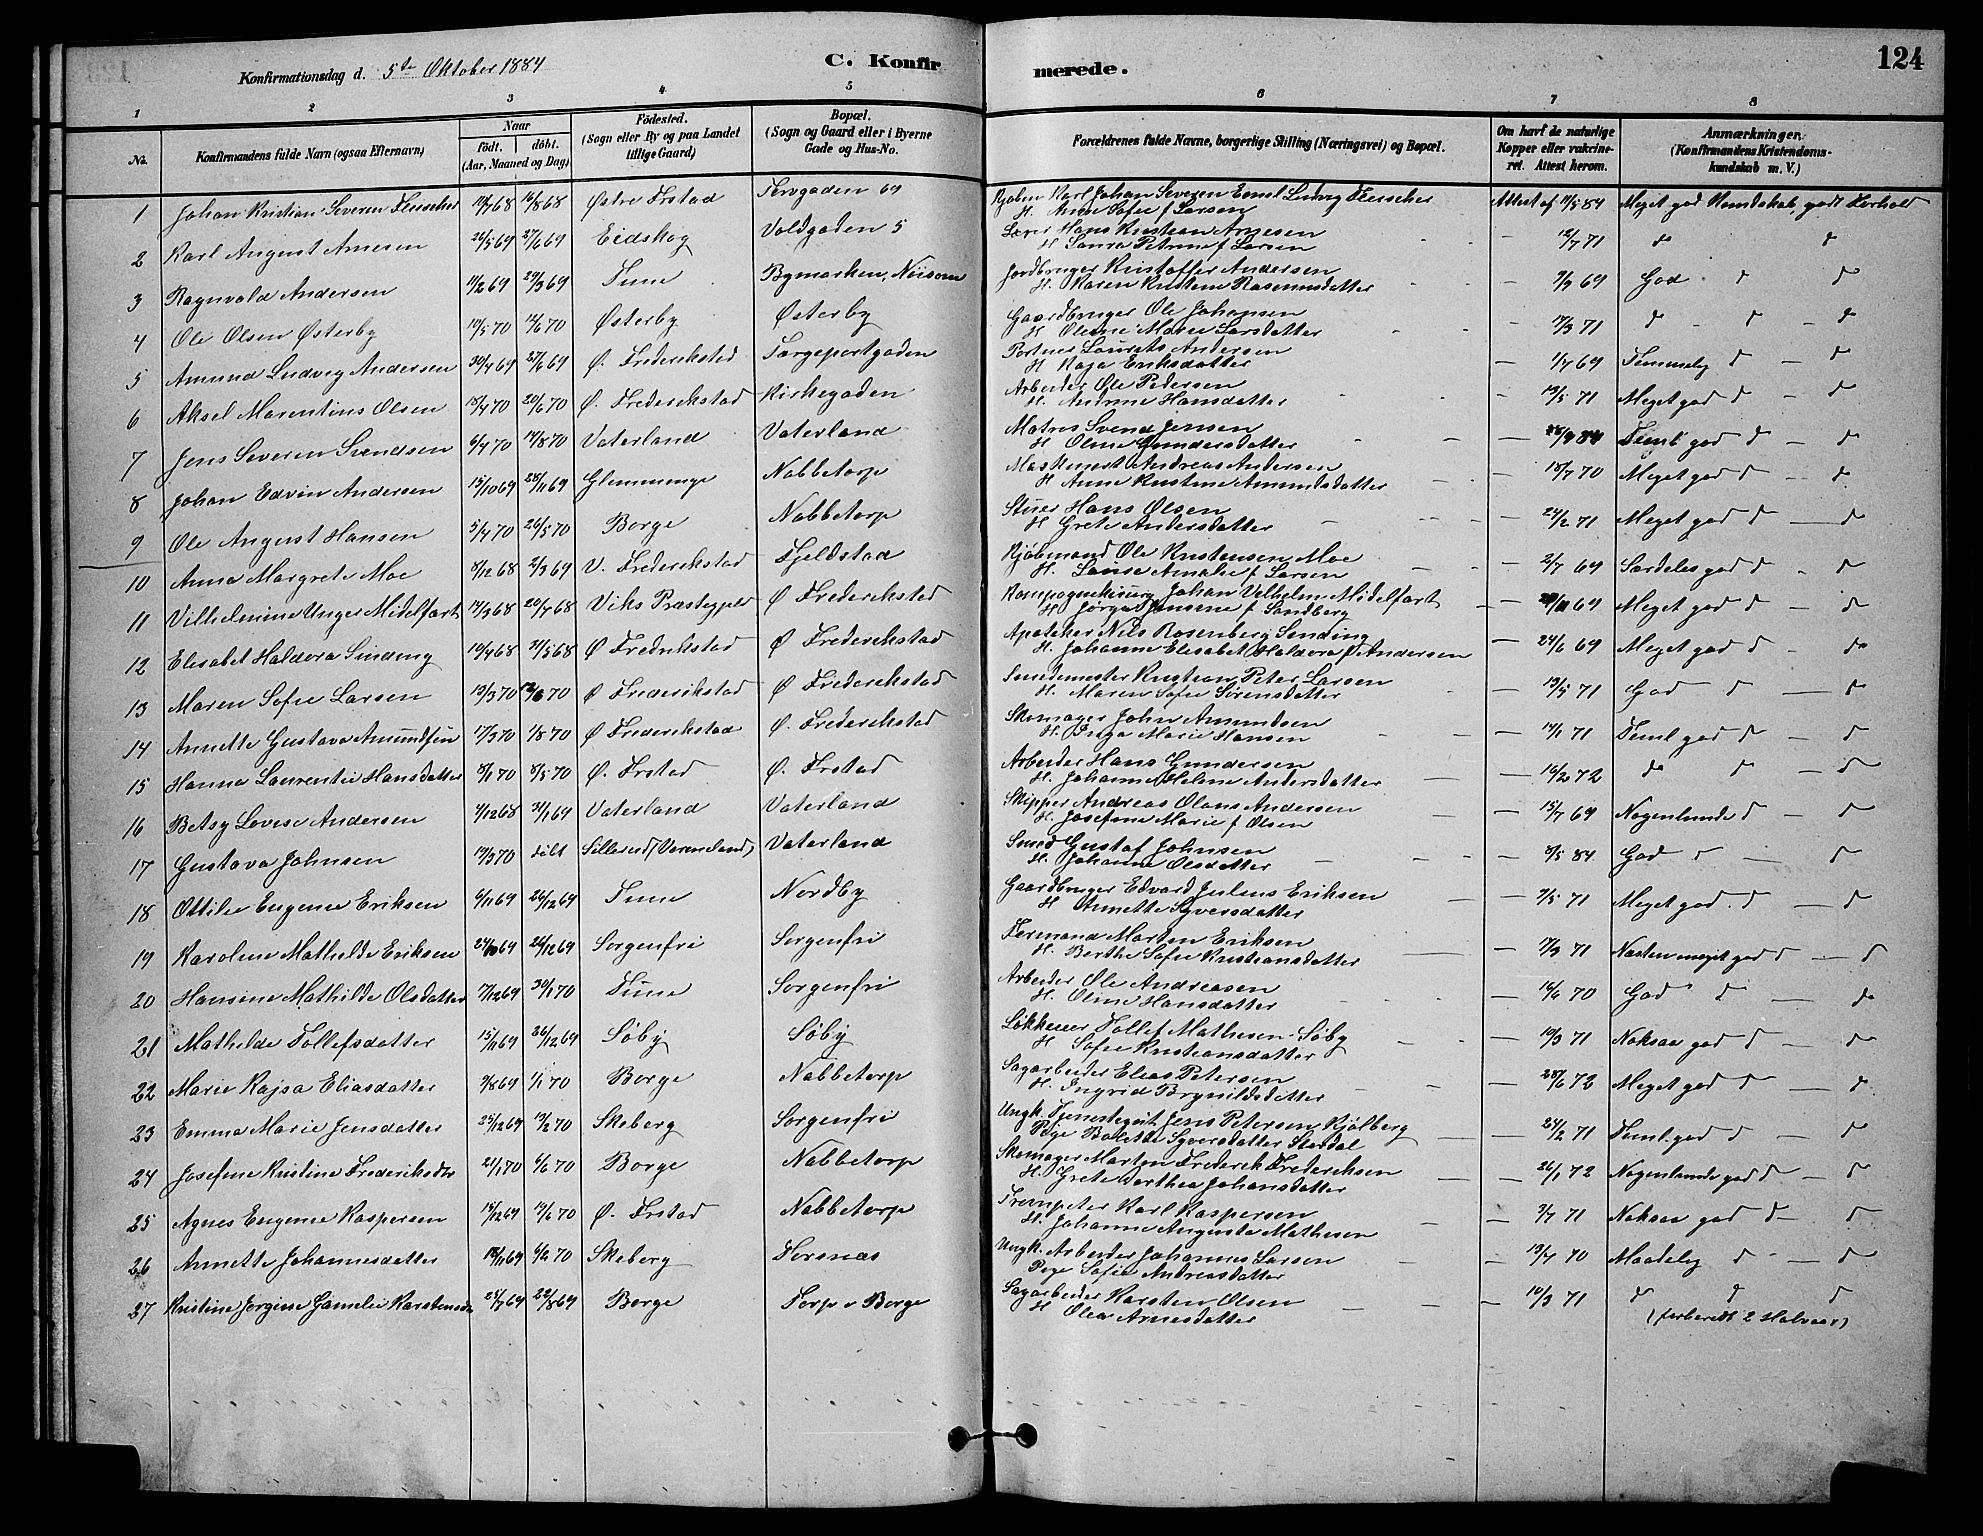 124
Konfirmationsdag d. 5te Oktober 1884 C. Konfirmerede.
1 2 3 4 5 6 7 8
No. Konfirmandens fulde Navn (ogsaa Efternavn) Naar født. døbt. (Aar, Maaned og Dag) Fødested. (Sogn eller By og paa Landet tillige Gaard) Bopæl. (Sogn og Gaard eller i Byerne Gade og Hus-No. Forældrenes fulde Navne, borgerlige Stilling (Næringsvei) og Bopæl. Om havt de naturlige Kopper eller vakcineret. Attest herom. Anmærkninger. (Konfirmandens Kristendomskundskab m. V.)
1 Johan Kristian Severin 16/8 68 Østre Frstad Karl Johan Severin Ernst Ludvig Attest af 11/5 84 Meget god Kundskab, godt Forhold
H. Anne Sofie f Larsen
2 Karl August Arnesen 26/5 69 27/6 69 Eidskog Voldgaden 5 Lærer Hans Kristian Arnesen 12/7 71 do do
H. Laura Petrine f Larsen
3 Ragnvald Andersen 11/2 69 29/3 69 Tune Bymarken, Jordbruger Kristoffer Andersen 9/9 69 God d d
H. Karen Kristine Rasmusdatter
4 Ole Olsen Østerby 10/5 70 12/6 70 Østerby Østerby Gaardbruger Ole Johansen 17/3 71 d d d
H. Oline Marie Larsdatter
5 Amund Ludvig Andersen 30/4 69 27/6 69 Ø. Frederikstad Torgeportgaden Portner Laurits Andersen 1/7 69 Temmelig d d
H. Kaja Eriksdatter
6 Aksel Marentius Olsen 18/4 70 20/6 70 Ø. Frederikstad Kirkegaden Arbeider Ole Pedersen 13/5 71 Meget god d d
H. Andrine Hansdatter
7 Jens Severin Svendsen 6/4 70 14/8 70 Vaterland Vaterland Matros Svend Jensen Teml god d d
H. Oline Gundersdatter
8 Johan Edvin Andersen 15/10 69 28/11 69 Glemminge Nabbetorp Maskinest Andreas Andersen 18/7 70 Meget god d d
H. Anne Kristine Amundsdatter
9 Ole August Hansen 5/4 70 26/5 70 Borge Nabbetorp Stuer Hans Olsen 24/2 71 Meget god d d
H. Grete Andersdatter
10 Anna Margrete Moe 8/12 68 2/3 69 V. Frederikstad Fjeldstad Kjøbmand Ole Kristensen Moe 2/7 69 Særdeles god d d
H. Lovise Amalie f Larsen
11 Vilhelmine Unger Midelfart 14/3 68 20/4 68 Viks Præstegjeld Ø Frederikstad Kompagnikirurg Johan Vilhelm Midelfart Meget god d d
H. Jørgine Jensine f Sandberg
12 Elisabet Haldora Sinding 10/4 68 31/5 68 Ø Fredrikstad Ø Frederikstad Apoteker Nils Rosenberg Sinding 24/6 69 Meget god d do
H. Johanne Elisabet Haldora f Andersen
13 Maren Sofie Larsen 13/3 70 Ø Frederikstad Ø Frederikstad Smedemester Kristian Peter Larsen 13/5 71 God d d
H. Maren Sofie Sørensdatter
14 Annette Gustava Amundsen 17/3 70 1/8 70 Ø Frederikstad Ø. Frederikstad Skomager John Amundsen 14/1 71 Teml god d d
H. Inga Marie Hansen
15 Hanna Laurentie Hansdatter 8/1 70 8/5 70 Ø. Frstad Ø. Frstad Arbeider Hans Gundersen 16/2 72 do d d
H. Johanne Helene Andersdatter
16 Betsy Lovise Andersen 4/12 68 31/1 69 Vaterland Vaterland Skipper Andreas Olaus Andersen 15/7 69 Nogenlunde d d
H. Josefine Marie f Olsen
17 Gustava Johnsen 19/3 70 døbt Sillerud (Vermeland) Vaterland Smed Gustaf Johnsen 3/5 84 God d d
H. Johanne Olsdatter
18 Ottilie Eugenie Eriksen 6/11 69 26/12 69 Tune Nordby Gaardbruger Edvard Julius Eriksen 7/5 71 Meget god d d
H. Annette Syversdatter
19 Karoline Mathilde Eriksen 24/10 69 26/12 69 Sorgenfri Sorgenfri Formand Marten Eriksen 17/3 71 Næsten meget god d d
H. Berthe Sofie Kristiansdatter
20 Hansine Mathilde Olsdatter 7/12 69 30/1 70 Tune Sorgenfri Arbeider Ole Andreasen 16/6 70 God d do
H. Oline Hansdatter
21 Mathilde Tollefsdatter 15/11 69 26/12 69 Søby Søby Løkkeeier Tollef Mathisen Søby 10/3 71 Noksaa god d do
H. Sofie Kristiansdatter
22 Marie Kajsa Eliasdatter 9/8 69 1/1 70 Borge Nabbetorp Sagarbeider Elias Petersen 28/6 72 Meget god d d
H. Ingrid Brynildsdatter
23 Emma Marie Jensdatter 25/12 69 13/2 70 Skeberg Sorgenfri Ungk. Tjenestegut Jens Petersen Kjølberg 24/2 71 Teml. god d d
Pige Bolette Syversdatter Stordal
24 Josefine Kristine Frederiksdtr 21/1 70 6/6 70 Borge Nabbetorp Skomager Marten Frederik Frederiksen 26/1 72 Nogenlunde god d d
H. Grete Dorthea Johansdatter
25 Agnes Eugenie Kaspersen 14/12 69 19/6 70 Ø. Frstad Nabbetorp Trompeter Karl Kaspersen 3/7 71 Noksaa god d d
H. Johanne Augusta Mathisen
26 Annette Johannesdatter 18/11 69 6/6 70 Skeberg Torsnæs Ungk. Arbeider Johannes Larsen 13/7 70 Maadelig d d
Pige Sofie Andreasdatter
27 Kristine Jørgine Gamelie Karstensdtr 25/7 69 22/8 69 Borge Torp i Borge Sagarbeider Karsten Olsen 10/3 71 d d d
H. Olea Arnesdatter (forberedt 2 Halvaar)